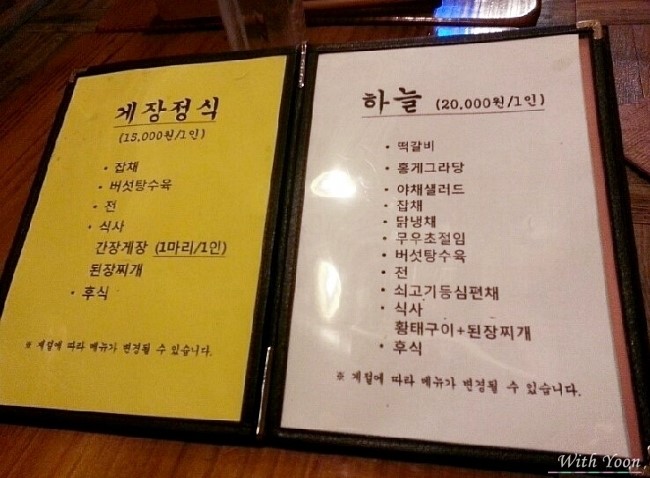 게장정식
(15,000원/1인)
• 잡채
• 버섯탕수육
• 전
• 식사
간장게장 (1마리/1인)
된장찌개
• 후식
※ 계절에 따라 메뉴가 변경될 수 있습니다.
하늘 (20,000원/1인)
• 떡갈비
• 홍게그라당
• 야채샐러드
• 잡채
• 닭냉채
• 무우초절임
• 버섯탕수육
• 전
• 쇠고기등심편채
• 식사
황태구이+된장찌개
• 후식
※ 계절에 따라 메뉴가 변경될 수 있습니다.
With Yoon